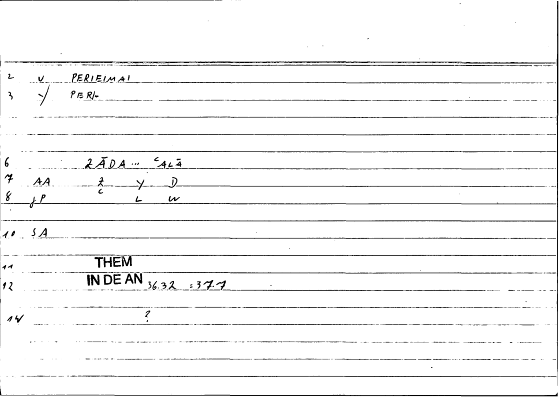 2 v PERIEIMAI
3 PERI-
6 ZĀDA... ʿALĀ
7 AA Z Y D
8 jP ʿ L W
10 SA
11 THEM
12 IN DE AN 36.32 :37.7
14 ?